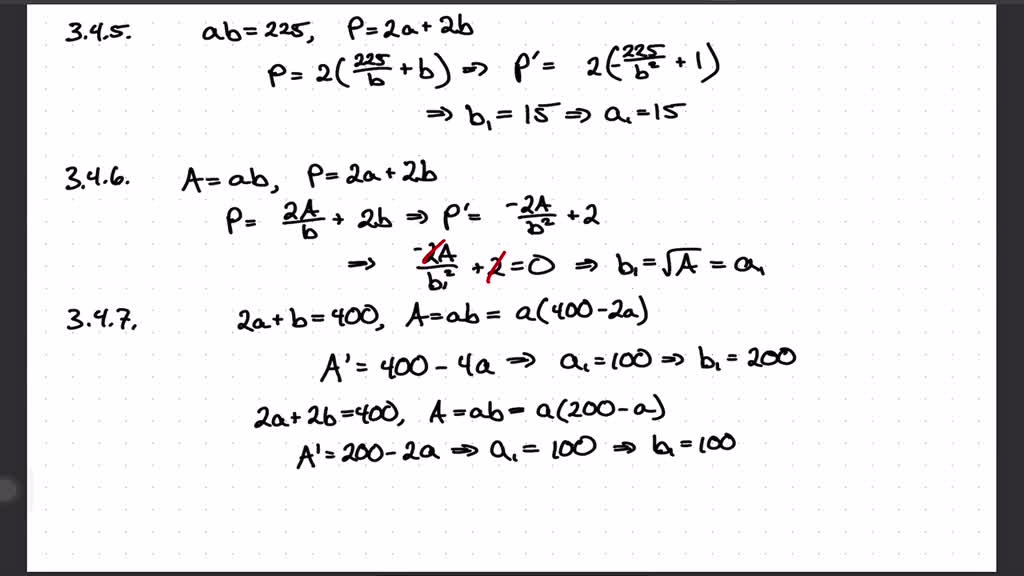 3.4.5. ab = 225, P = 2a + 2b
P = 2(225/b + b) ⇒ P' = 2(-225/b² + 1)
⇒ b₁ = 15 ⇒ a₁ = 15
3.4.6. A = ab, P = 2a + 2b
P = 2A/b + 2b ⇒ P' = -2A/b² + 2
⇒ -2A/b₁² + 2 = 0 ⇒ b₁ = √A = a₁
3.4.7. 2a + b = 400, A = ab = a(400 - 2a)
A' = 400 - 4a ⇒ a₁ = 100 ⇒ b₁ = 200
2a + 2b = 400, A = ab = a(200 - a)
A' = 200 - 2a ⇒ a₁ = 100 ⇒ b₁ = 100